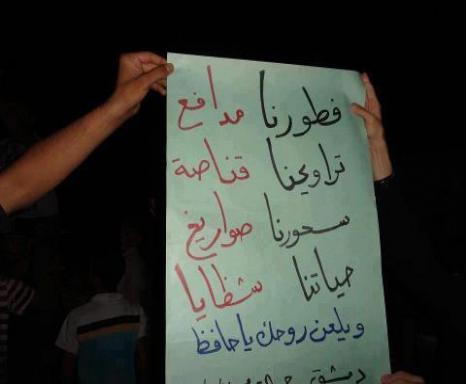 فطورنا مدافع
تراويحنا قناصة
سحورنا صواريخ
حياتنا شظايا
ويلعن روحك يا حافظ
دمشق